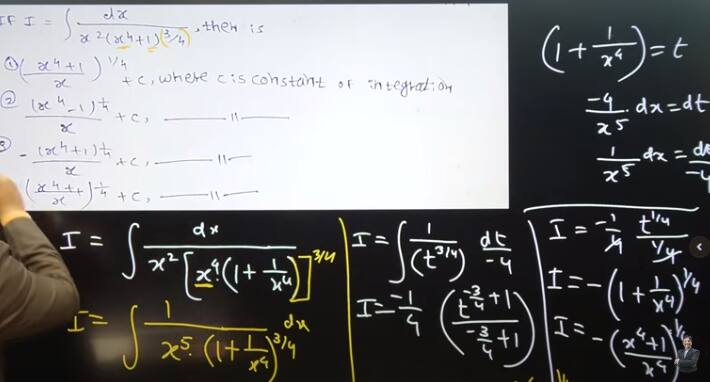 IF I = ∫ dx / x²(x⁴+1)^(3/4), then is
① (x⁴+1 / x)^1/4 + c, where c is constant of integration
② (x⁴-1)^1/4 / x + c, —— 11 ——
- (x⁴+1)^1/4 / x + c, —— 11 —
(x⁴+1 / x)^1/4 + c, —— 11 ——
(1 + 1/x⁴) = t
-4/x⁵ . dx = dt
1/x⁵ dx =
I = ∫ dx / x² [x⁴.(1 + 1/x⁴)]^3/4
I = ∫ 1 / x⁵.(1 + 1/x⁴)^3/4 dx
I = ∫ 1/(t^3/4) dt/-4
I = -1/4 (t^(-3/4 + 1) / (-3/4 + 1))
I = -1/4 t^1/4 / 1/4
I = - (1 + 1/x⁴)^1/4
I = - (x⁴+1 / x⁴)